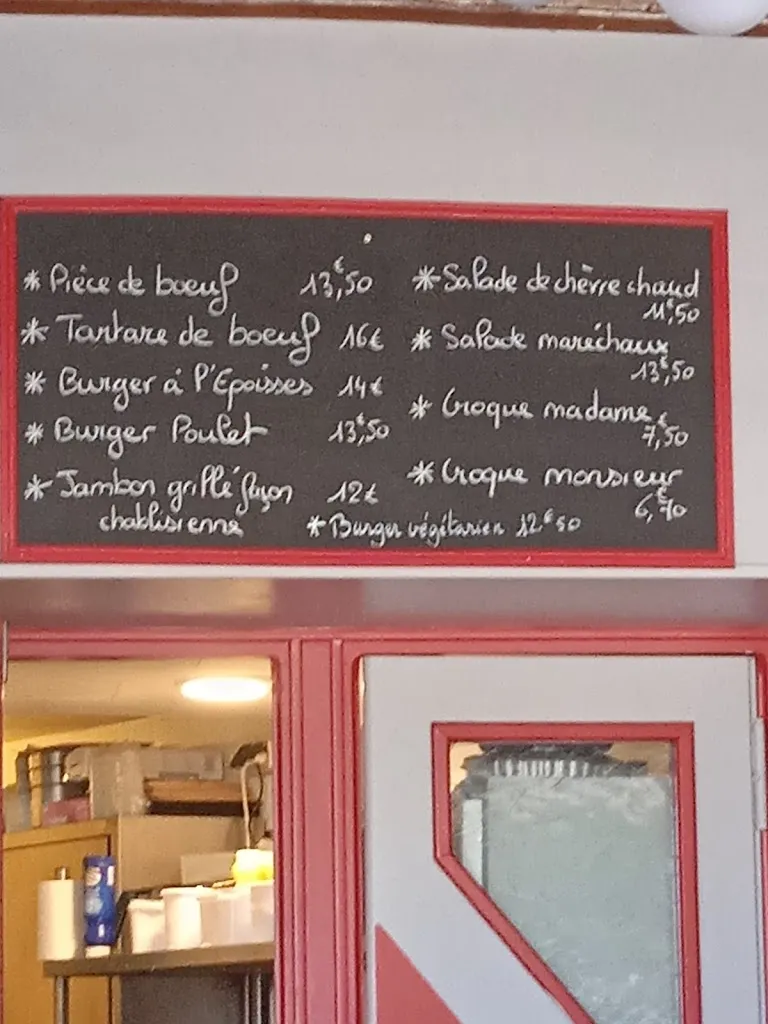 * Pièce de bœuf 13€,50
* Tartare de boeuf 16€
* Burger à l'Epoisses 14€
* Burger Poulet 13€,50
* Jambon grillé façon 12€
chablisienne
* Salade de chèvre chaud
11€,50
* Salade maréchaux
13€,50
* Croque madame
7€,50
* Croque monsieur
6€,70
* Burger végétarien 12€50